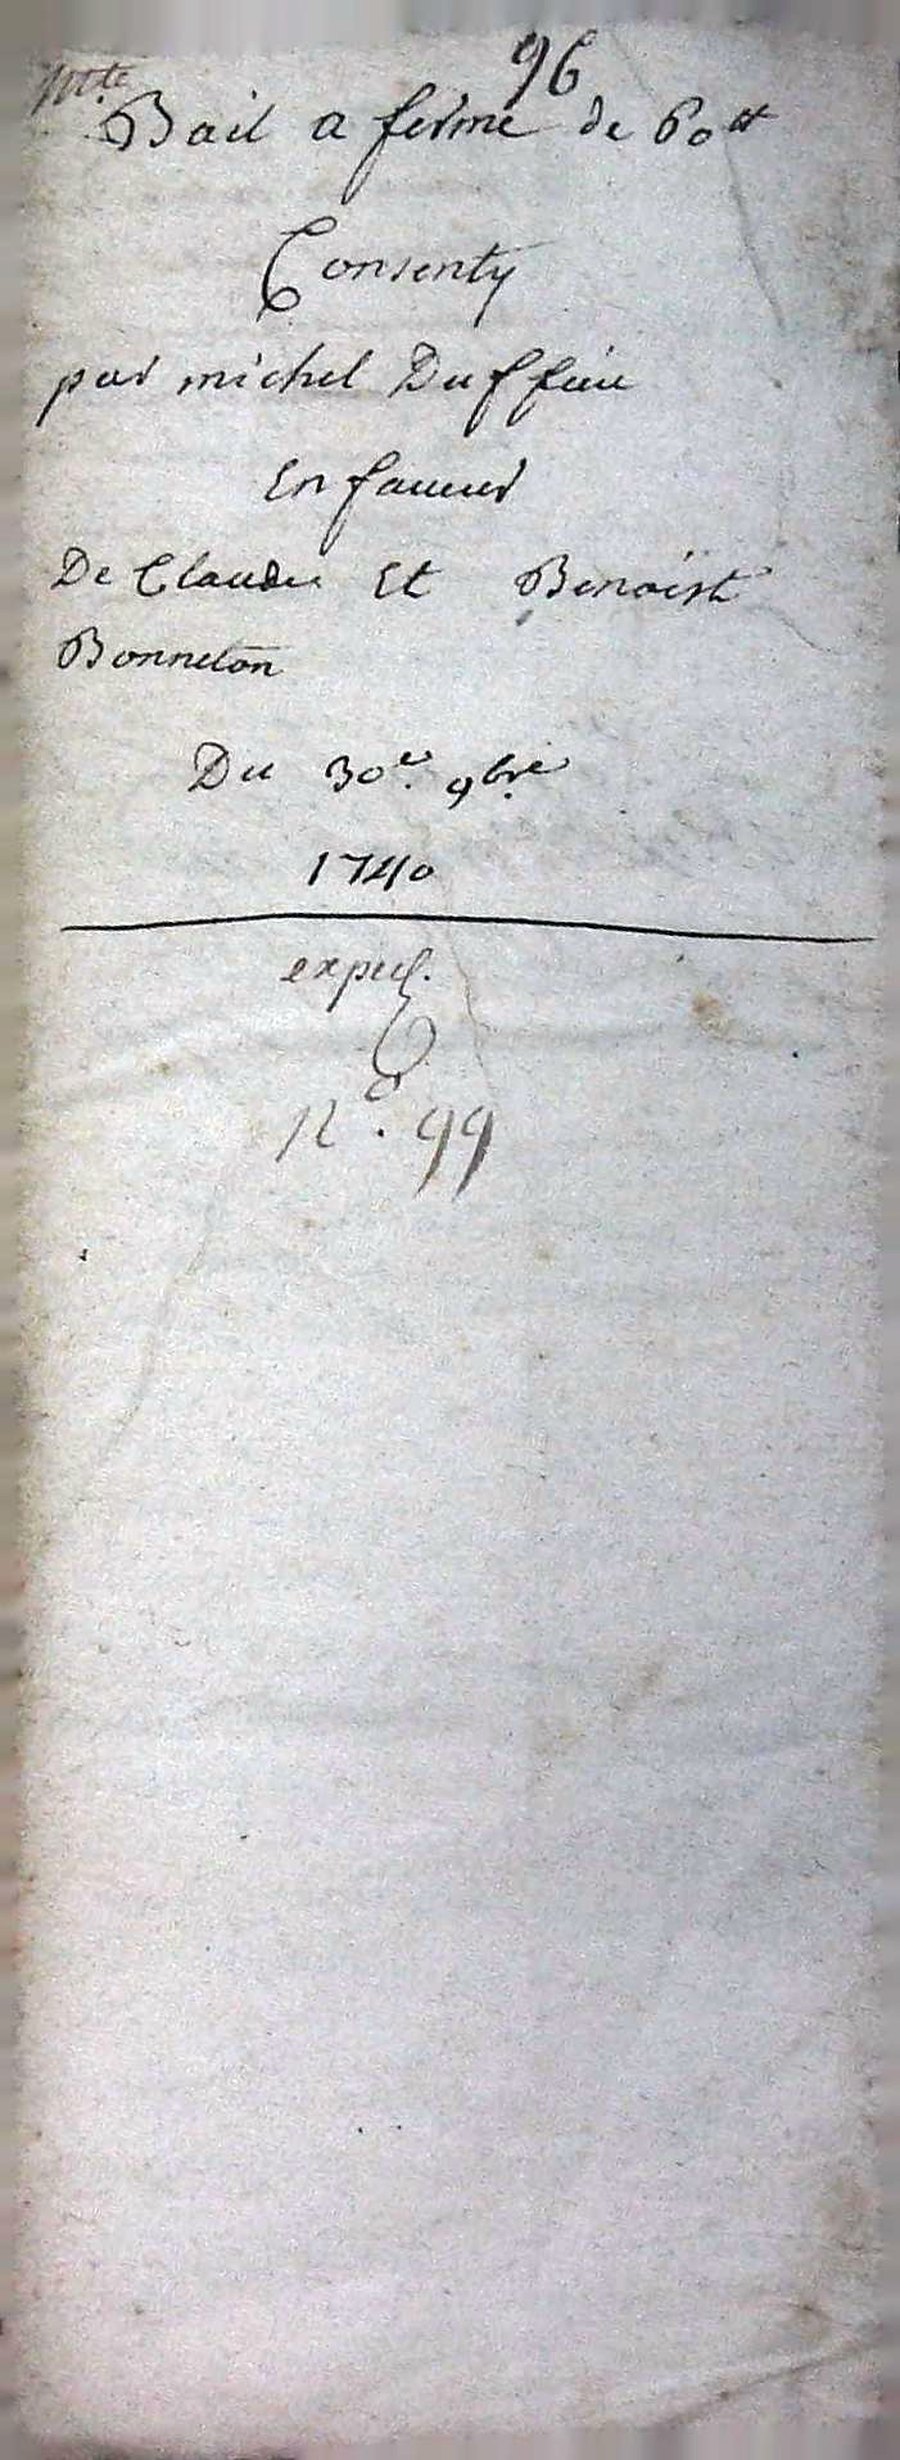 96
mte
Bail a ferme de 60 tt
Consenty
par michel Duffieu
En faueur
De Claude Et Benoist
Bonneton
Du 30e. 9bre
1740
N°. 99